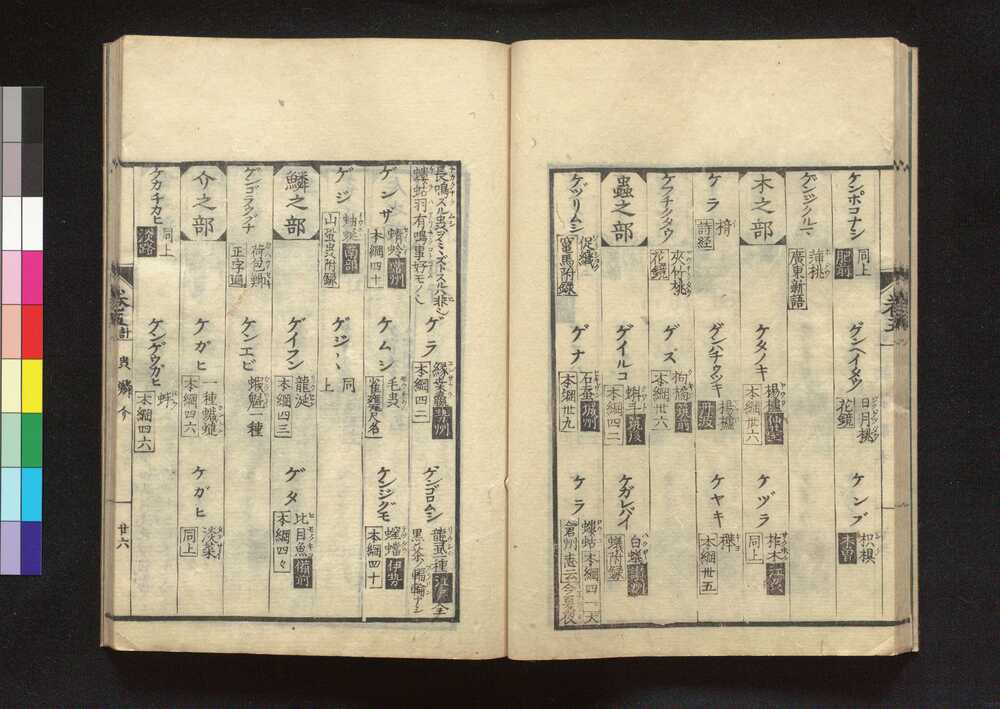 ケンポコナシ 同上 肥前
ゲンヘイタウ 日月桃 花鏡
ケンブ 枳椇 木曽
ゲンジクルマ 蒲桃 廣東新語
木之部
ケタノキ 楊櫨 仙臺 本綱卅六
ケヅラ 柞木 同上
ケラ 楕 詩経
ゲンハチウツギ 楊櫨 丹波
ケヤキ 欅 本綱卅五
ケフチクタウ 夾竹桃 花鏡
ゲズ 枸橘 筑前 本綱卅六
蟲之部
ゲイルコ 蝌斗 筑後 本綱四二
ケガレバイ 白蝋 蝋附録
ケヅリムシ 促織 竃馬附録
ゲナ 石蚕 城州 本綱卅九
ケラ 螻蛄 本綱四一 天
倉州志云今夏夜
長鳴スル虫ヲミミズトスルハ非ジ
螻蛄羽有鳴事好モノヘ
ゲラ 緑桑蠃 藝州 本綱四二
ゲンゴロムシ 龍虱 一種 江戸 全
黒シ茶
ゲンザ 蜻蛉 常州 本綱四十
ケムシ 毛虫 雀甕ノ尺名
ケンジグモ 螲蟷 伊勢 本綱四十
ゲジ 蚰蜒 南部 山蛩虫附録
ゲジゝ 同上
鱗之部
ゲイフン 龍涎 本綱四三
ゲタ 比目魚 備前 本綱四々
ゲンゴラウブナ 荷包鯽 正字通
ケンエビ 蝦魁一種
介之部
ケガヒ 一種蠘 本綱四六
ケガヒ 淡菜 同上
ケカチカヒ 同上 淡路
ケンゲウガヒ 蚌 本綱四六
巻五
計
虫鱗介
廿六